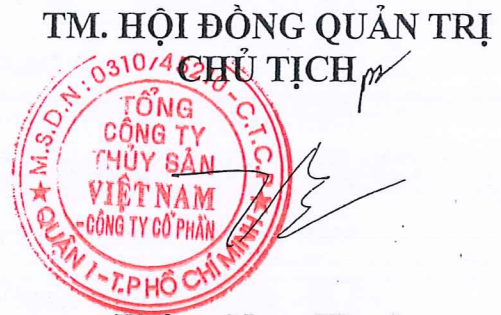 TM. HỘI ĐỒNG QUẢN TRỊ
CHỦ TỊCH
M.S.D.N: 0310745210 - C.T.C.P
TỔNG
CÔNG TY
THỦY SẢN
VIỆT NAM
-CÔNG TY CỔ PHẦN
QUẬN 1 - T.P HỒ CHÍ MINH